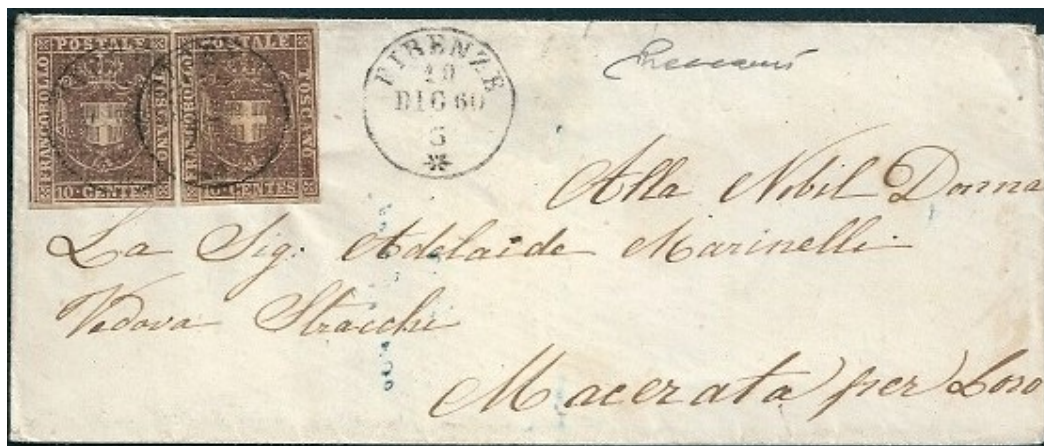 POSTALE
FRANCOBOLLO
TOSCANO
10 CENTES
POSTALE
FRANCOBOLLO
TOSCANO
10 CENTES
FIRENZE
10
DIC 60
Alla Nobil Donna
La Sig: Adelaide Marinelli
Vedova Stracchi
Macerata per Loro